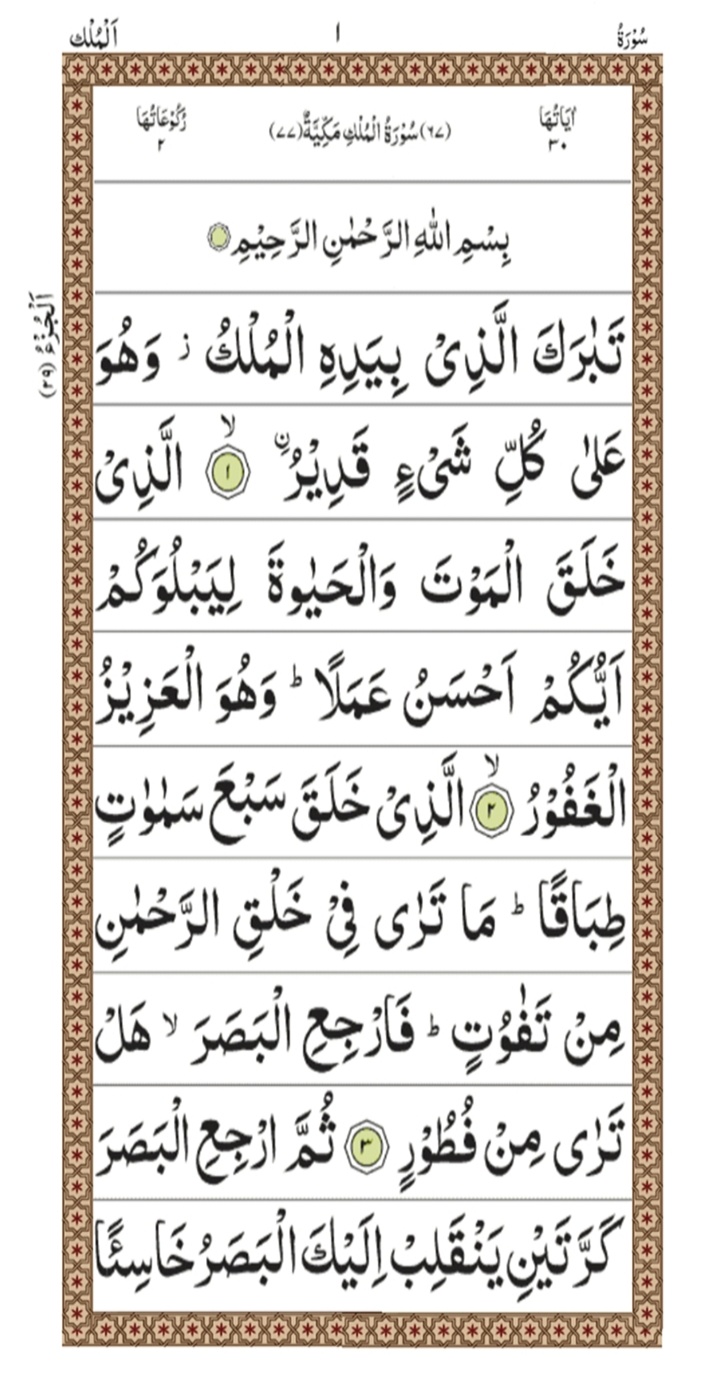 سُوْرَةُ ١ اَلْمُلْك
اٰيَاتُهَا ٣٠ (٦٧) سُوْرَةُ الْمُلْكِ مَكِّيَّةٌ (٧٧) رُكُوْعَاتُهَا ٢
بِسْمِ اللّٰهِ الرَّحْمٰنِ الرَّحِيْمِ
تَبٰرَكَ الَّذِىْ بِيَدِهِ الْمُلْكُ ز وَهُوَ
عَلٰى كُلِّ شَىْءٍ قَدِيْرُ ۨ ۙ ١ الَّذِىْ
خَلَقَ الْمَوْتَ وَالْحَيٰوةَ لِيَبْلُوَكُمْ
اَيُّكُمْ اَحْسَنُ عَمَلًا ؕ وَهُوَ الْعَزِيْزُ
الْغَفُوْرُ ۙ ٢ الَّذِىْ خَلَقَ سَبْعَ سَمٰوٰتٍ
طِبَاقًا ؕ مَا تَرٰى فِىْ خَلْقِ الرَّحْمٰنِ
مِنْ تَفٰوُتٍ ؕ فَارْجِعِ الْبَصَرَ ۙ هَلْ
تَرٰى مِنْ فُطُوْرٍ ٣ ثُمَّ ارْجِعِ الْبَصَرَ
كَرَّتَيْنِ يَنْقَلِبْ اِلَيْكَ الْبَصَرُ خَاسِئًا
اَلْجُزْءُ (٢٩)